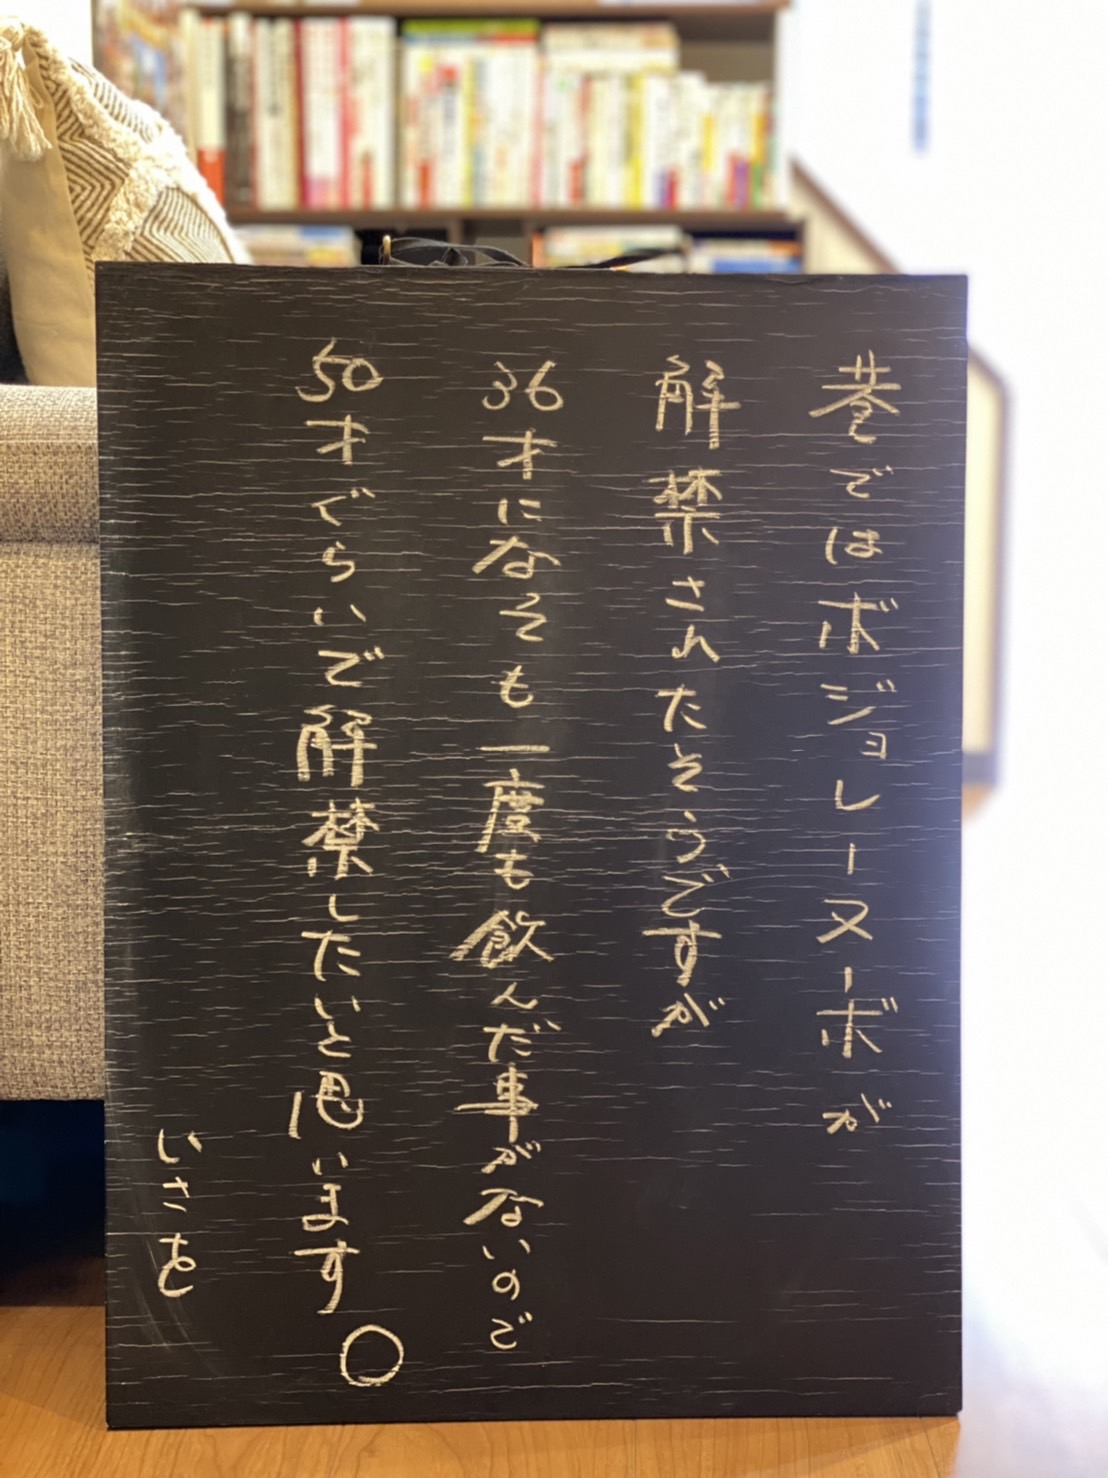 巷ではボジョレーヌーボが
解禁されたそうですが
36才になそも一度も飲んだ事がないのご
50才ぐらいで解禁したいと思います。
いさを